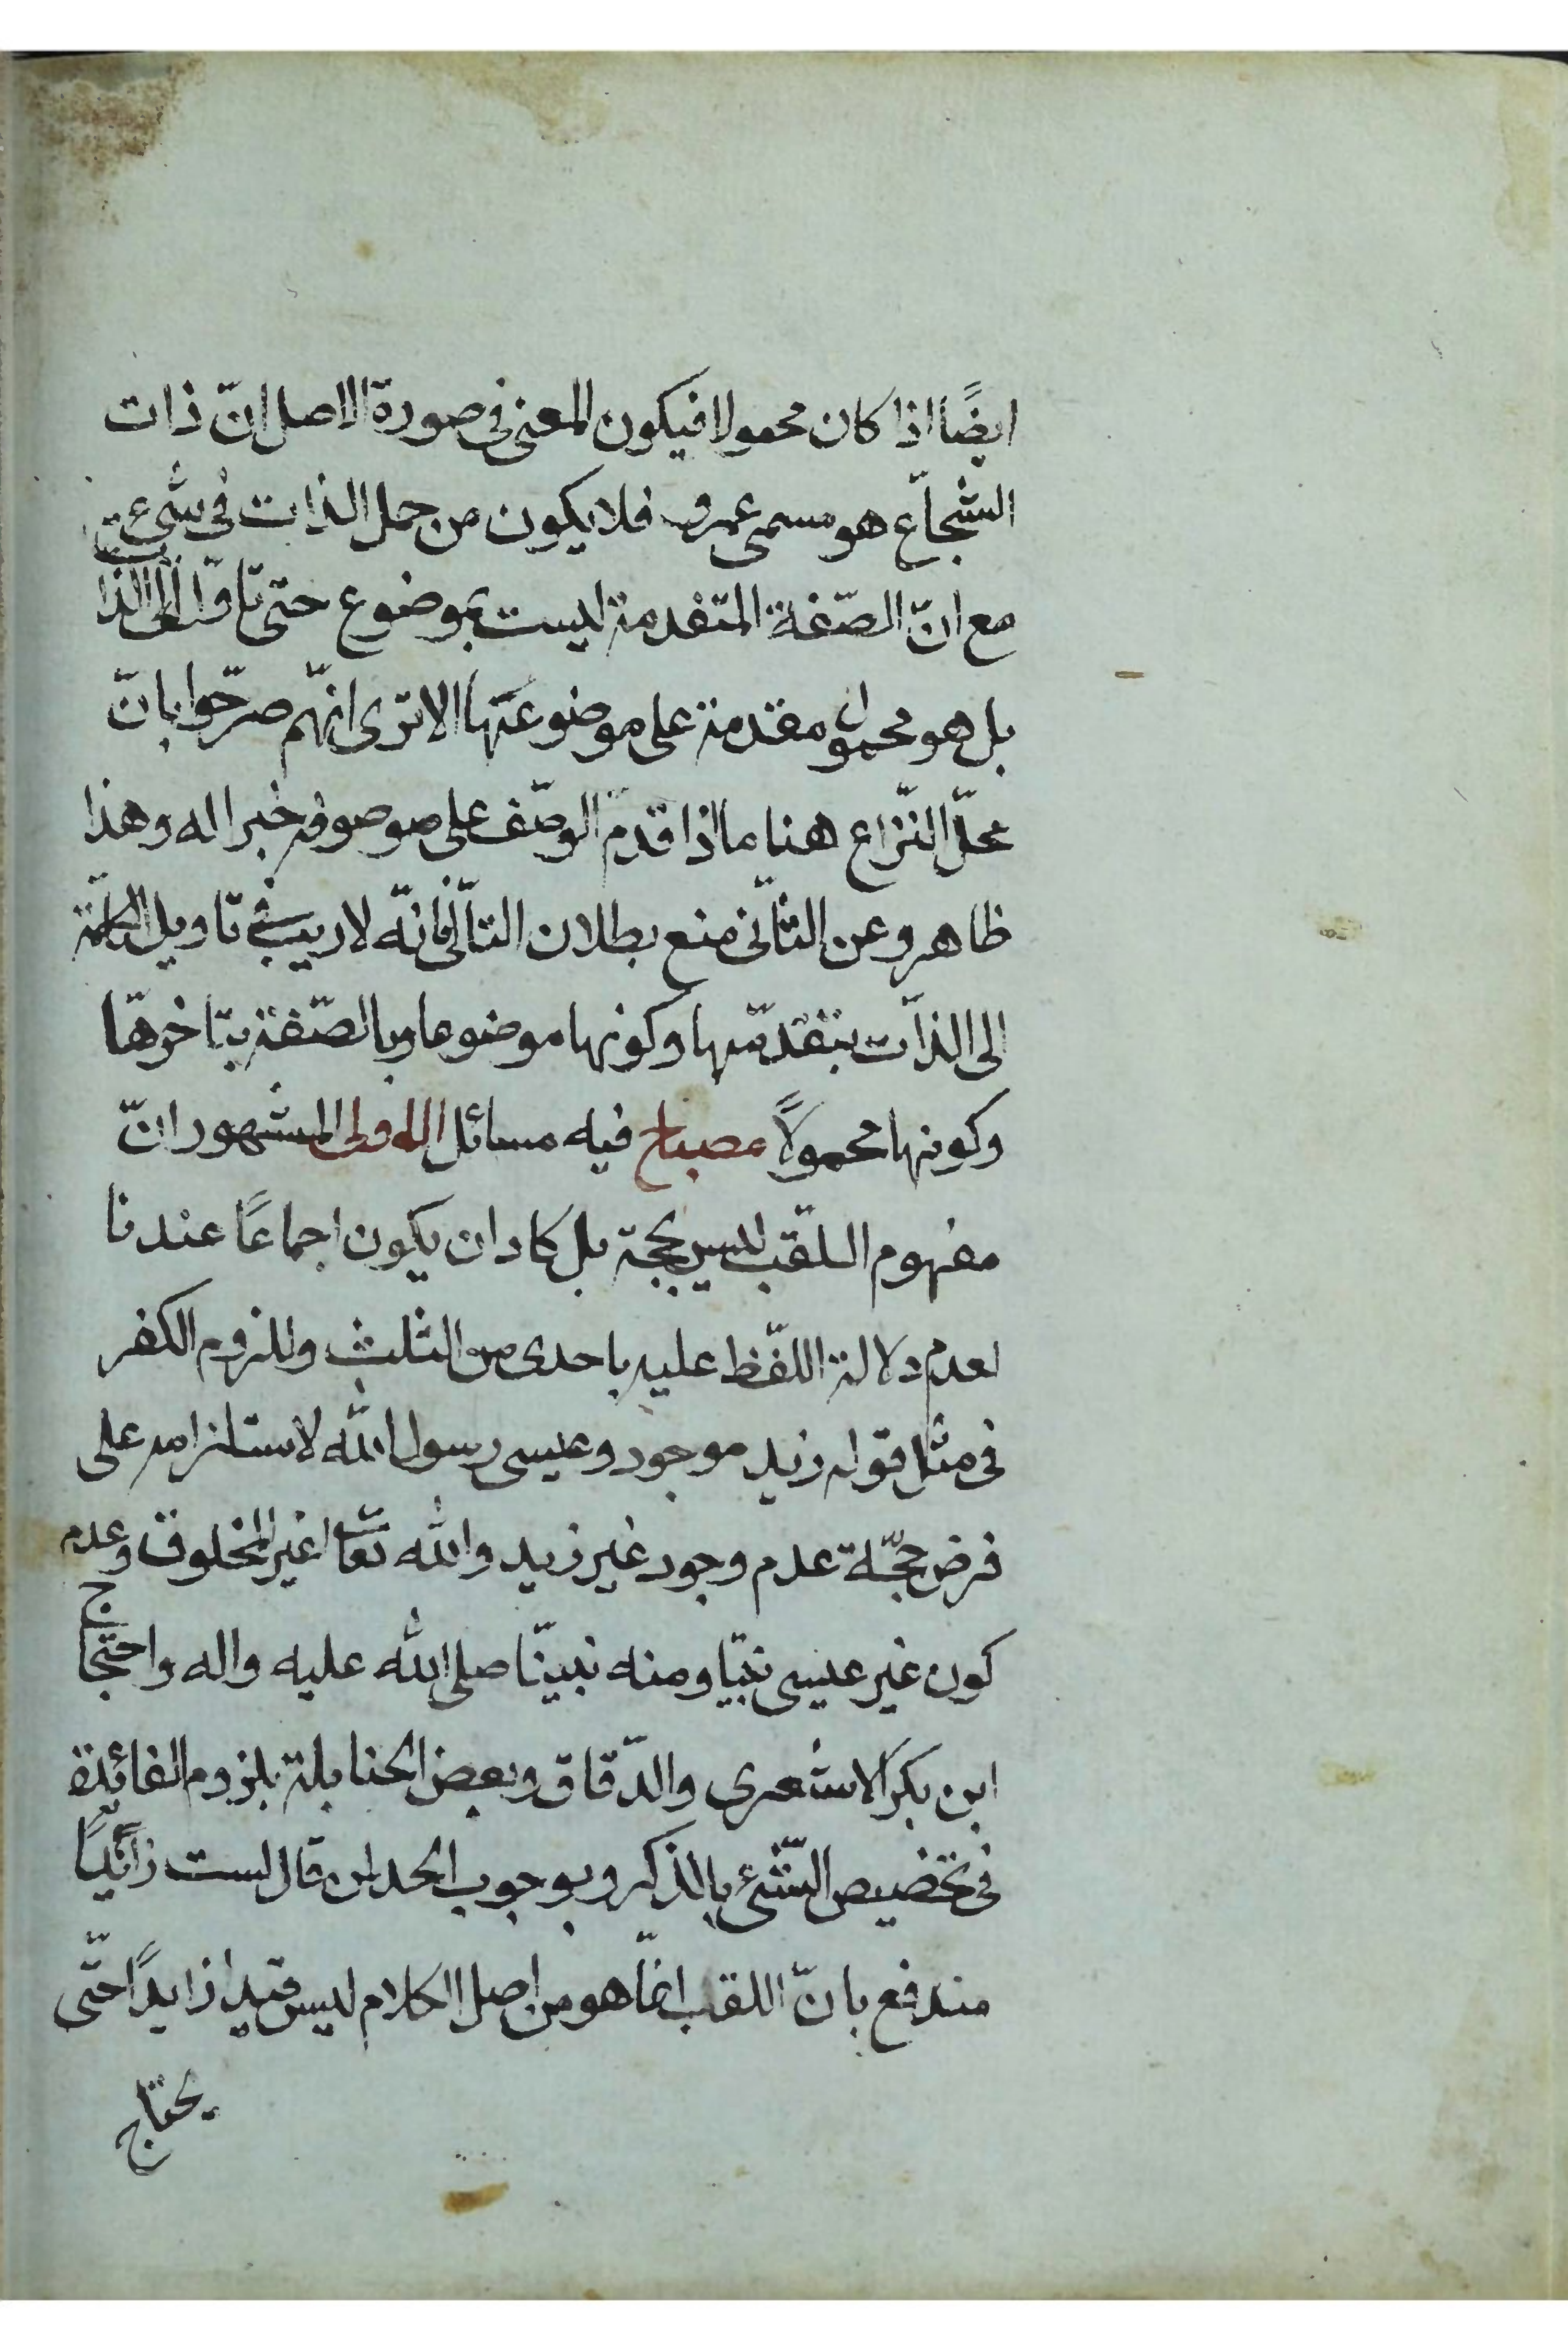 ايضًا اذا كان محمولا فيكون المعنى فى صورة الاصل انّ ذات
الشجاع هو مسمى عمرو فلا يكون من حمل الذات فى شىء
مع انّ الصّفة المتقدمة ليست بموضوع حتى تاوّل الى الذات
بل هو محمول مقدمة على موضوعتها الا ترى انهّم صرّحوا بانّ
محلّ النّزاع هنا ما اذا قدّم الوصّف على موصوفه خبرا له وهذا
ظاهر وعن الثّانى منع بطلان التّالى فانّه لا ريب فى تاويل الكلمة
الى الذّات بتقدّمها وكونها موضوعا وبالصّفة بتاخرّها
وكونها محمولاً مصباح فيه مسائل الاولى المشهور انّ
مفهوم اللّقب ليس بحجة بل كاد ان يكون اجماعًا عندنا
لعدم دلالة اللّفظ عليه باحدى من الثلث وللزوم الكفر
فى مثل قوله زيد موجود وعيسى رسول الله لاستلزامه على
فرض حجّية عدم وجود غير زيد والله تعا غير المخلوق وعدم
كون غير عيسى نبيّا ومنه نبيّنا صلى الله عليه واله واحتجاج
ابن بكر الاشعرى والدّقاق وبعض الحنابلة بلزوم الفائدة
فى تخصيص الشّىء بالذكر وبوجوب الحد لمن قال لست زانيًا
مندفع بانّ اللقب انمّا هو من اصل الكلام ليس قيدا زايدًا حتّى
يحتاج